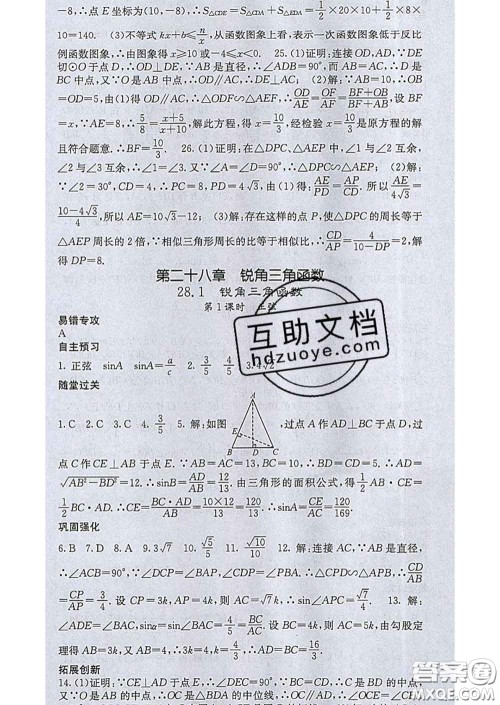 -8,∴点E坐标为(10,-8),∴S△CDE=S△CDA+S△EDA=1/2×20×10+1/2×8×
10=140. (3)不等式kx+b≤n/x,从函数图象上看,表示一次函数图象低于反比
例函数图象,∴由图象得x≥10或-4≤x<0. 25.(1)证明:连接OD,AD,∵DE
切⊙O于点D,∴OD⊥DE,∵AB是直径,∴∠ADB=90°,而AB=AC,∴D是
BC中点,又∵O是AB中点,∴OD∥AC,∴DE⊥AC; (2)解:∵AB=10,∴OB
=OD=5,由(1)得OD∥AC,∴△ODF∽△AEF,∴OD/AE=OF/AF=(BF+OB)/(BF+AB),设BF
=x,∵AE=8,∴5/8=(x+5)/(x+10),解此方程,得x=10/3,经检验x=10/3是原方程的解
且符合题意.∴BF=10/3. 26.(1)证明:在△DPC、△AEP中,∠1与∠2互余,
∠2与∠3互余,∴∠1=∠3.又∵∠A=∠D=90°,∴△DPC∽△AEP; (2)解:
∵∠2=30°,CD=4,∴PC=8,PD=4√3.由(1)得:AE/PD=AP/CD. 所以AE/(4√3)=
(10-4√3)/4,所以AE=10√3-12; (3)解:存在这样的点P,使△DPC的周长等于
△AEP周长的2倍,∵相似三角形周长的比等于相似比,∴CD/AP=4/(10-DP)=2,解
得DP=8.
第二十八章 锐角三角函数
28.1 锐角三角函数
第1课时 正弦
易错专攻
A
自主预习
1. 正弦 sinA sinA=a/c 2. 3/5 4/5 3. 4√2
随堂过关
1.C 2.C 3.C 4. 3/5 5. 解:如图 ,过点A作AD⊥BC于点D,过
A
E
B D C
点C作CE⊥AB于点E.∵AB=AC=13,BC=10,∴BD=5.∴AD=
√(AB²-BD²)=12.∴sinB=AD/AB=12/13.由三角形的面积公式,得1/2AB·CE=
1/2BC·AD.∴CE=BC·AD/AB=10×12/13=120/13.∴sinA=CE/AC=120/169.
巩固强化
6.B 7.D 8.A 9.3√7 10. √5/5 11. √10/10 12. 解:连接AC,∵AB是直径,
∴∠ACB=90°,∵∠DCP=∠BAP,∠CDP=∠PBA,∴△PCD∽△PAB,∴CD/AB
=CP/AP=3/4. 设CP=3k,AP=4k,则AC=√7k,∴sin∠APC=AC/AP=√7/4. 13. 解:
∠ADE=∠BAC,sinα=sin∠BAC=BC/AC=3/5. 设BC=3k,则AC=5k,由勾股定
理得AB=4k,又AB=4,∴AD=BC=3k,∴AD=16/3.
拓展创新
14.(1)证明:∵CE⊥AD于点E,∴∠DEC=90°,∵BC=CD,∴C是BD的中点,
又∵O是AB的中点,∴OC是△BDA的中位线,∴OC∥AD,
互助文档
hdzuoye.com
答案圈
MXQE.COM